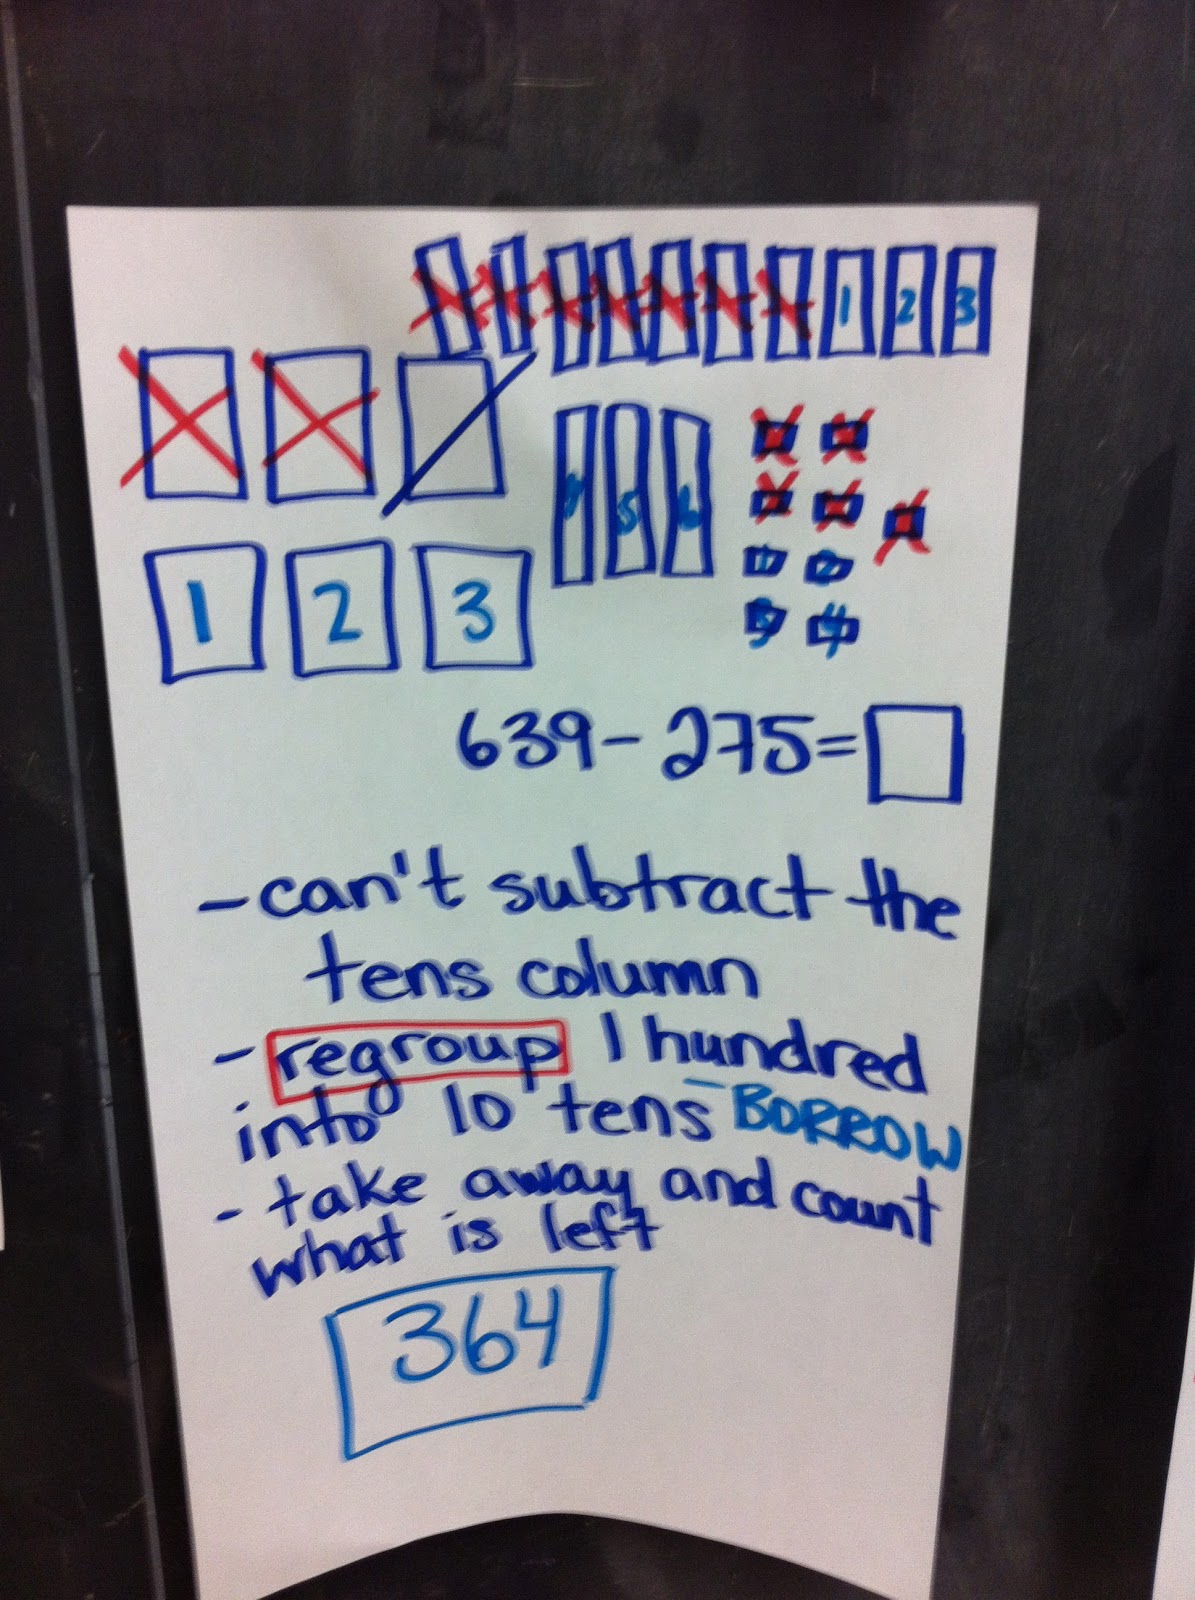 1 2 3
4 5 6
1 2 3
1 2
3 4
639 - 275 = □
- can't subtract the
tens column
- regroup 1 hundred
into 10 tens - BORROW
- take away and count
what is left
364